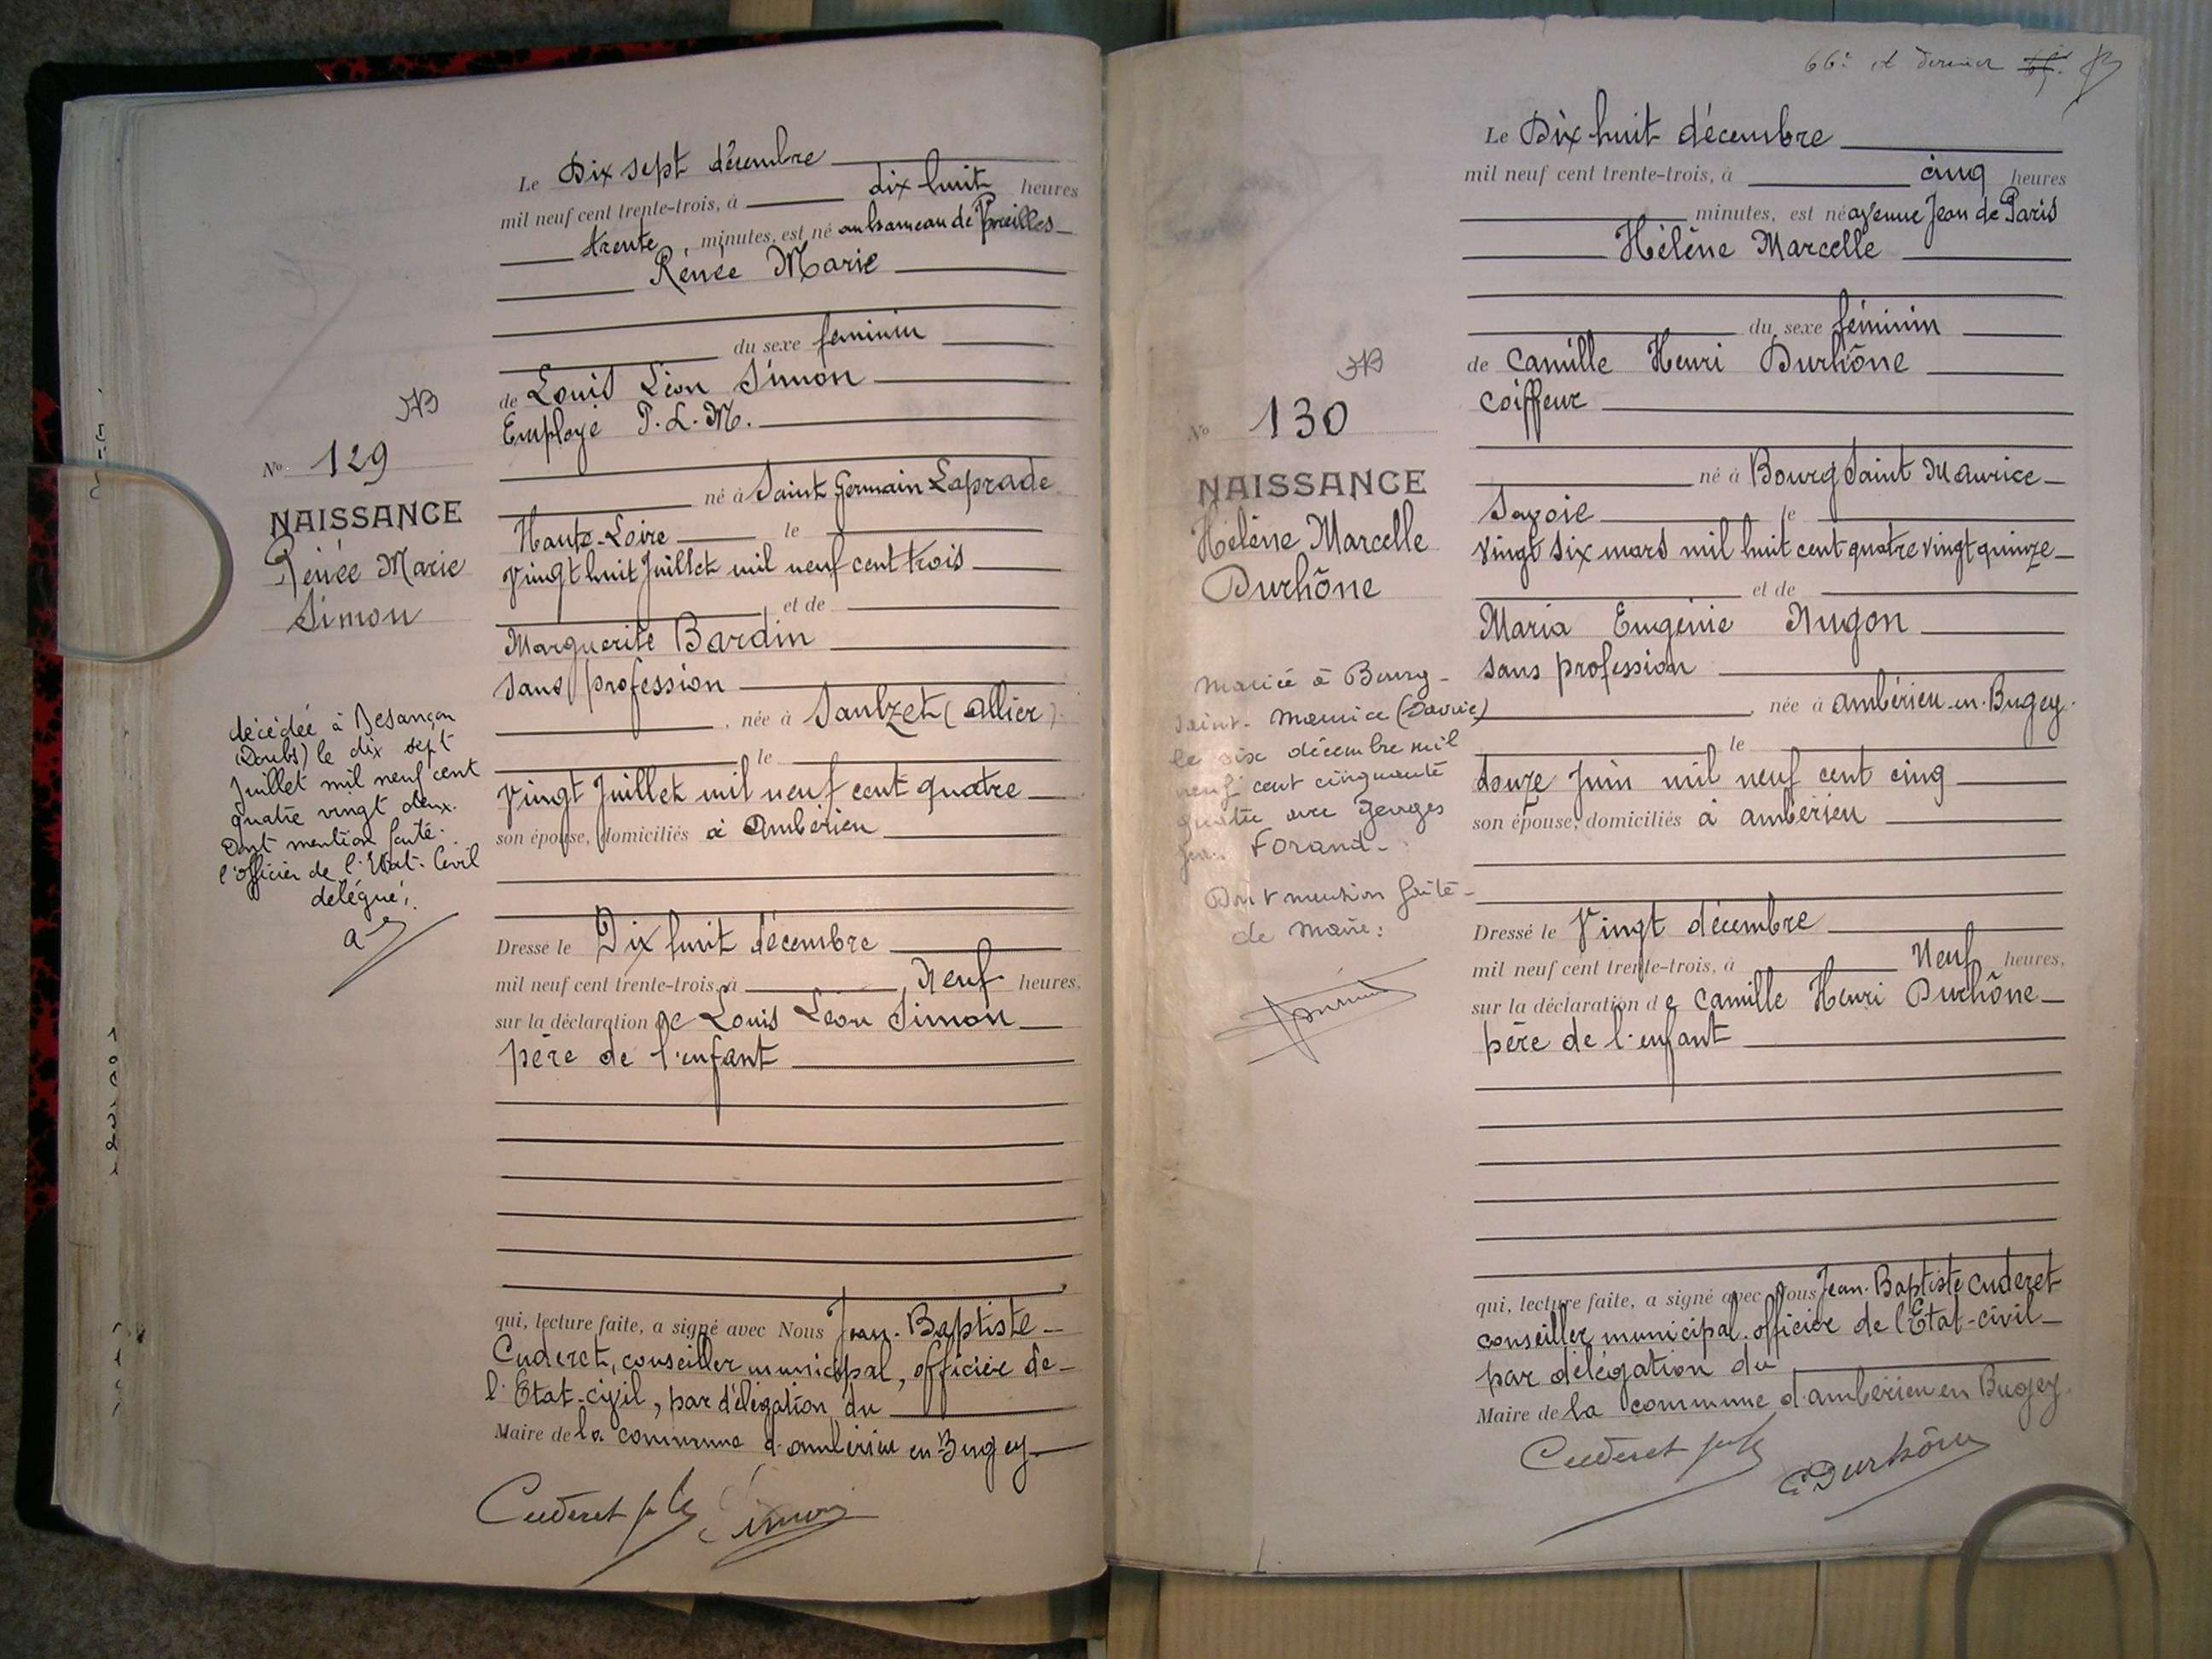 Le Dix sept décembre
mil neuf cent trente-trois, à dix huit heures
trente, minutes, est né au hameau de Vareilles
Rénée Marie
du sexe feminin
de Louis Léon Simon
Employé P.L.M.
né à Saint Germain Laprade
Haute-Loire le
Vingt huit Juillet mil neuf cent trois
et de
Marguerite Bardin
sans profession
née à Saulzet (Allier)
le
Vingt Juillet mil neuf cent quatre
son épouse, domiciliés à Ambérieu
Dressé le Dix huit décembre
mil neuf cent trente-trois, à Neuf heures,
sur la déclaration de Louis Léon Simon
père de l'enfant
qui, lecture faite, a signé avec Nous Jean-Baptiste
Cuderet, conseiller municipal, officier de
l'Etat-civil, par délégation du
Maire de la commune d'ambérieu en Bugey
Cuderet Simon
No 129
NAISSANCE
Rénée Marie
Simon
décédée à Besançon
(Doubs) le dix sept
Juillet mil neuf cent
quatre vingt deux.
Dont mention faite.
l'officier de l'Etat-Civil
délégué,
66e et dernier
Le Dix huit décembre
mil neuf cent trente-trois, à cinq heures
minutes, est né avenue Jean de Paris
Hélène Marcelle
du sexe féminin
de Camille Henri Durhône
coiffeur
né à Bourg Saint Maurice
Savoie le
vingt six mars mil huit cent quatre vingt quinze
et de
Maria Eugénie Nugon
sans profession
née à ambérieu-en-Bugey
le
douze Juin mil neuf cent cinq
son épouse, domiciliés à ambérieu
Dressé le Vingt décembre
mil neuf cent trente-trois, à Neuf heures,
sur la déclaration de Camille Henri Durhône
père de l'enfant
qui, lecture faite, a signé avec Nous Jean-Baptiste Cuderet
conseiller municipal officier de l'Etat-civil
par délégation du
Maire de la commune d'ambérieu en Bugey
Cuderet C Durhône
No 130
NAISSANCE
Hélène Marcelle
Durhône
Mariée à Bourg-
Saint-Maurice (Savoie)
le six décembre mil
neuf cent cinquante
quatre avec Georges
Forand.
Dont mention faite
Le Maire: